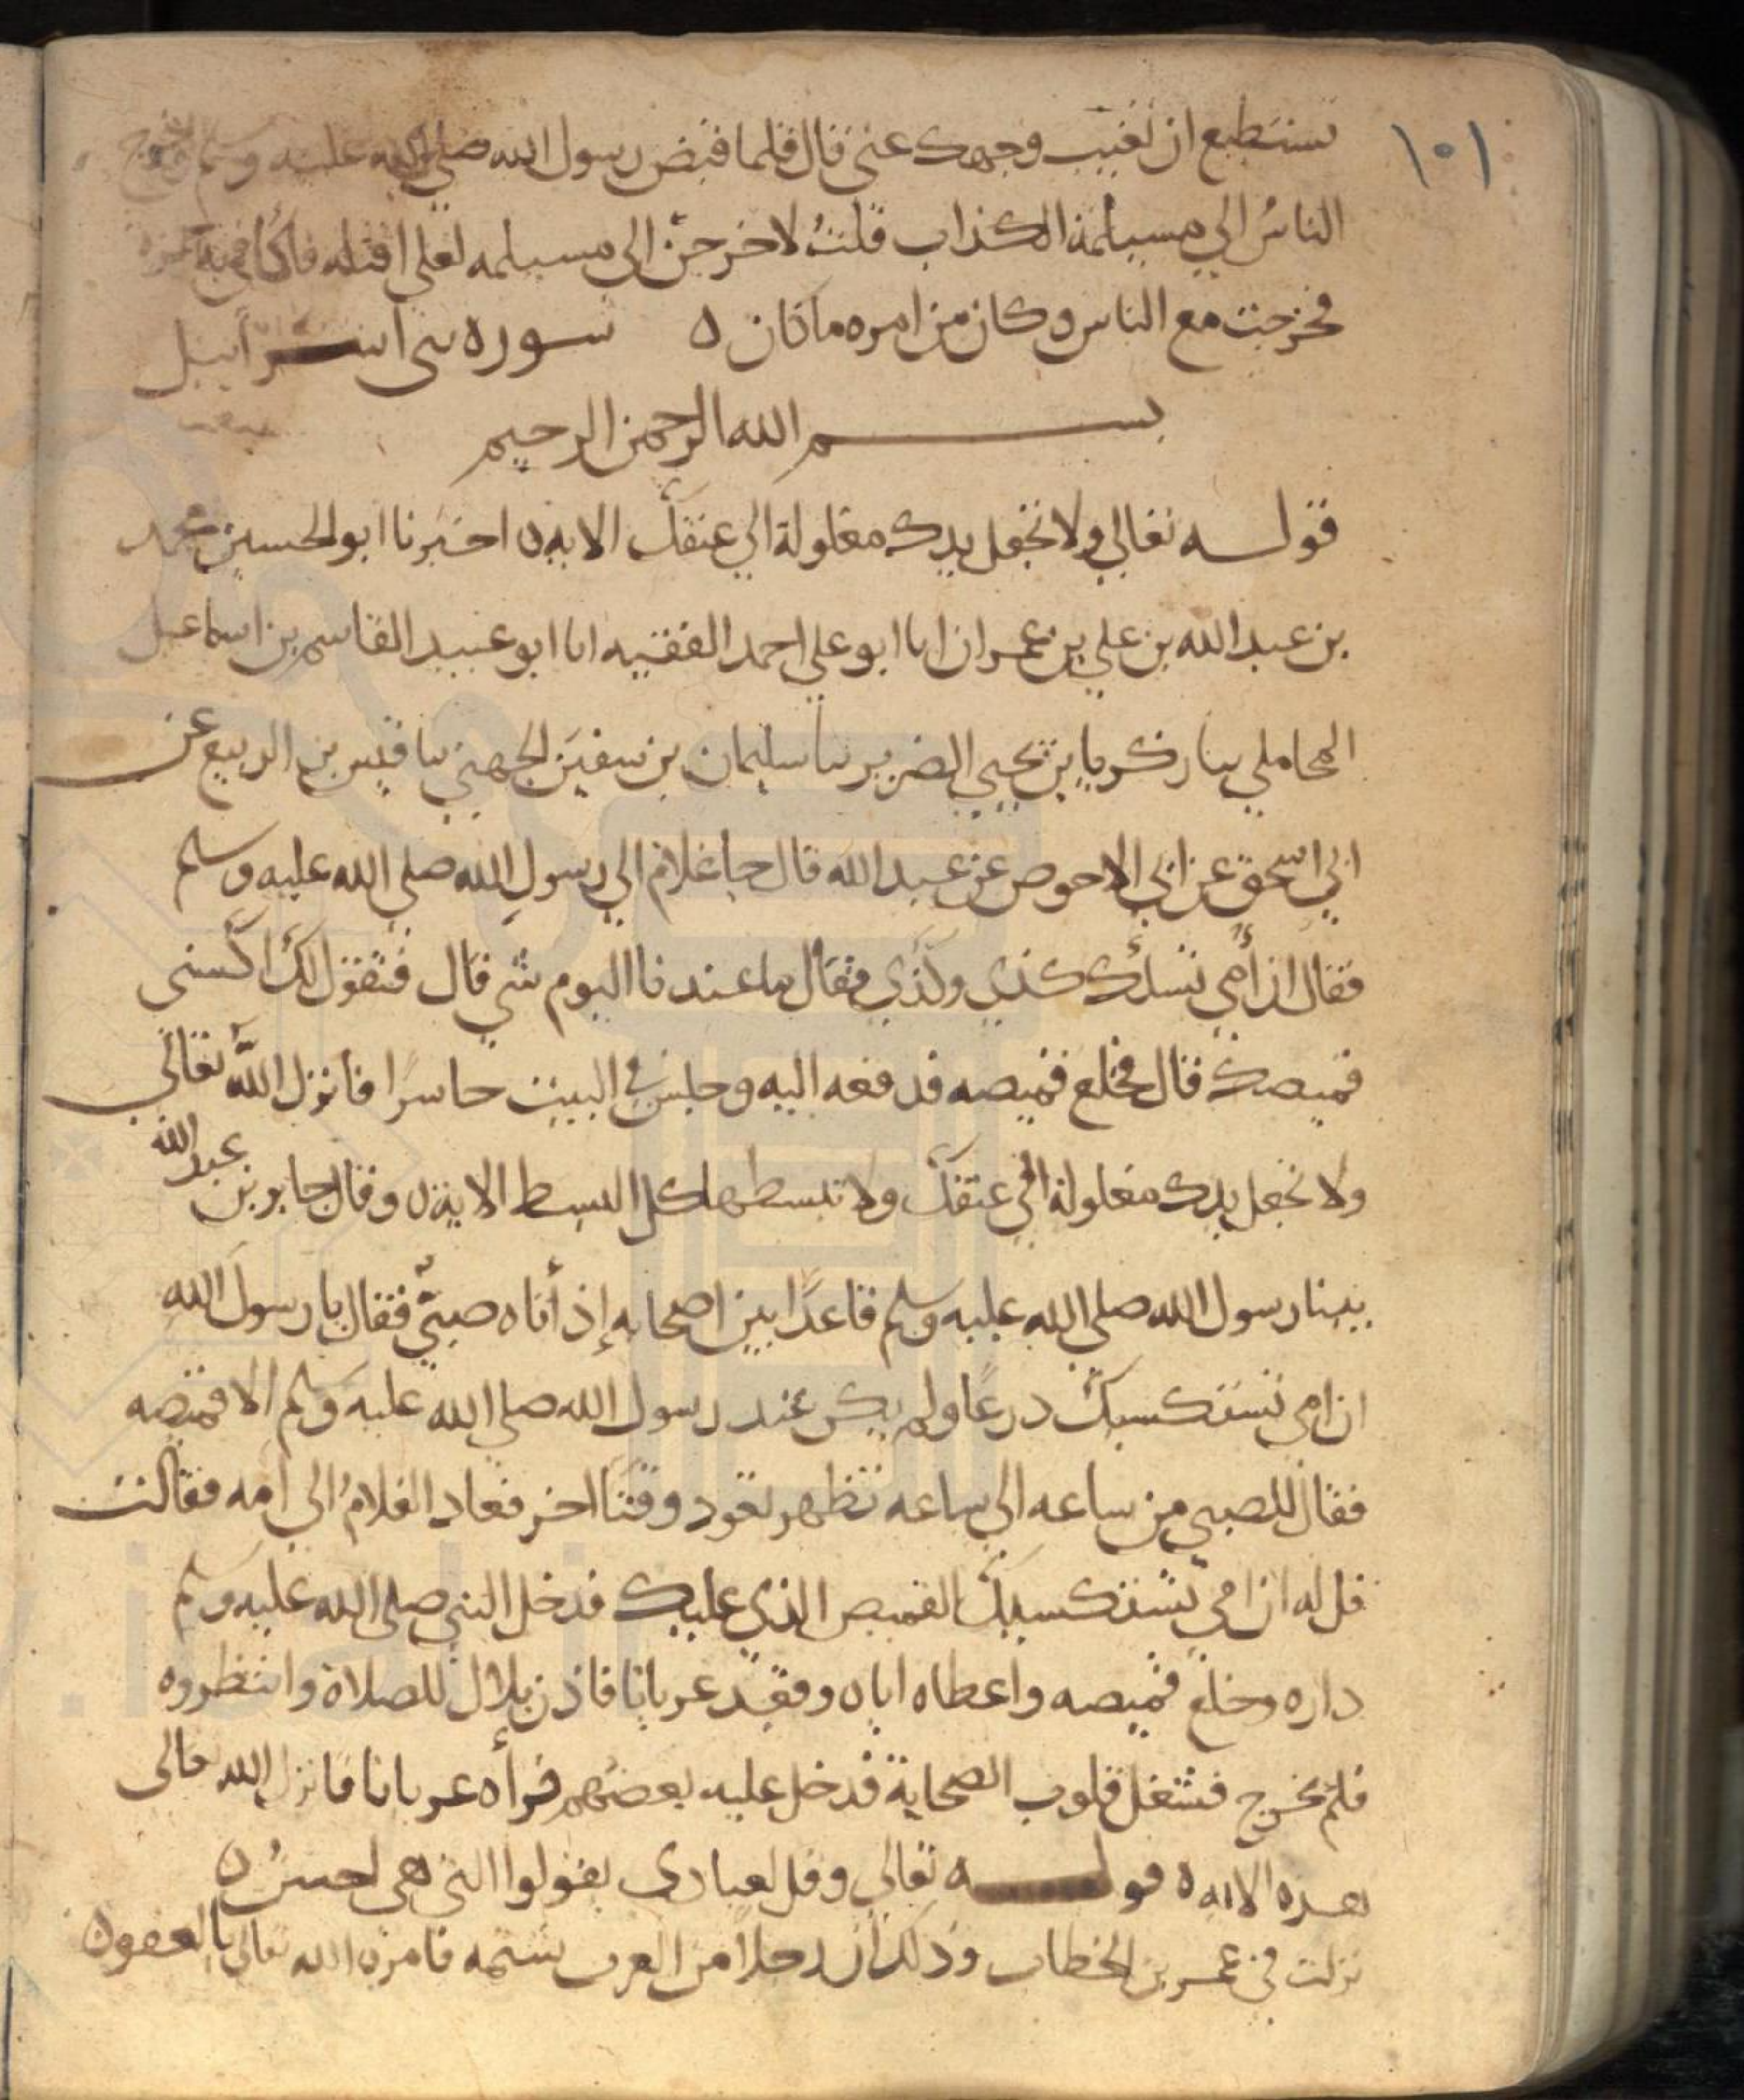 ١٠١
تستطيع ان تغيب وجهك عنى قال فلما قبض رسول الله صلى الله عليه وسلم وخرج
الناسُ الي مسيلمة الكذاب قلتُ لاخرجنّ الى مسيلمه لعلى اقتله فاكافي به حمزة
فخرجت مع الناس وكان من امره ماكان ٥ سوره بنى اسرآييل
بسم الله الرحمن الرحيم
قوله تعالي ولا تجعل يدك مغلولة الي عنقك الايه ٥ اخبرنا ابو الحسين محمد
بن عبد الله بن علي بن عمران انا ابو علي احمد الفقيه انا ابو عبيد القاسم بن اسماعيل
المحاملي ثنا زكريا بن يحيي الضرير ثنا سليمان بن سفين الجهني ثنا قيس بن الربيع عن
ابي اسحق عن ابي الاحوص عن عبد الله قال جا غلام الي رسول الله صلي الله عليه وسلم
فقال ان أمي تسلُك كذي وكذي فقال ما عندنا اليوم شي قال فتقول لك اكسنى
قميصك قال فخلع قميصه فدفعه اليه وجلس في البيت حاسرًا فانزل اللّه تعالي
ولا تجعل يدك مغلولة الي عنقك ولا تبسطها كل البسط الاية ٥ وقال جابر بن عبد الله
بينا رسول الله صلي الله عليه وسلم قاعدًا بين اصحابه إذ أتاه صبيّ فقال يا رسول الله
ان امي تستكسيك درعًا ولم يكن عند رسول الله صلي الله عليه وسلم الا قميصه
فقال للصبي من ساعه الي ساعه تظهر تعود وقتًا اخر فعاد الغلامُ الي امه فقالت
قل له ان امي تستكسيك القميص الذي عليك فدخل النبي صلى الله عليه وسلم
داره وخلع قميصه واعطاه اياه وقعد عريانا فاذن بلال للصلاة وانتظروه
فلم يخرج فشغل قلوب الصحابة فدخل عليه بعضهم فرأه عريانا فانزل الله تعالى
هذه الايه ٥ قوله تعالي وقل لعبادي يقولوا التي هى احسنُ ٥
نزلت في عمر بن الخطاب وذلك ان رجلًا من العرب شتمه فامره الله تعالى بالعفو ٥